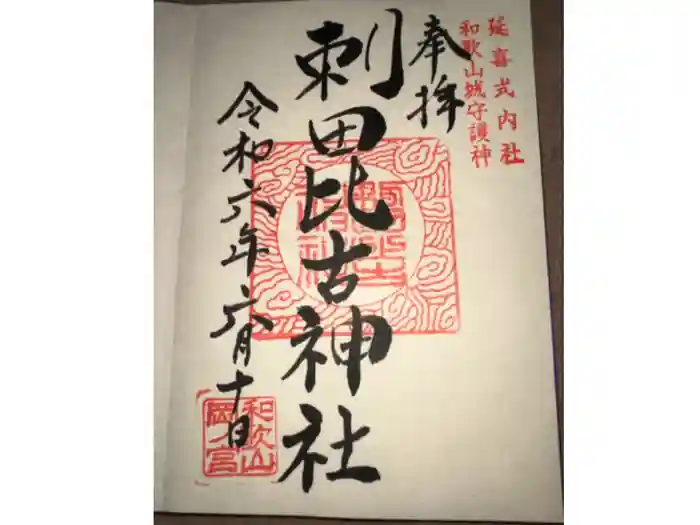 延喜式内社
和歌山城守護神
奉拝
刺田毘古神社
令和六年六月十日
和歌山
岡ノ宮